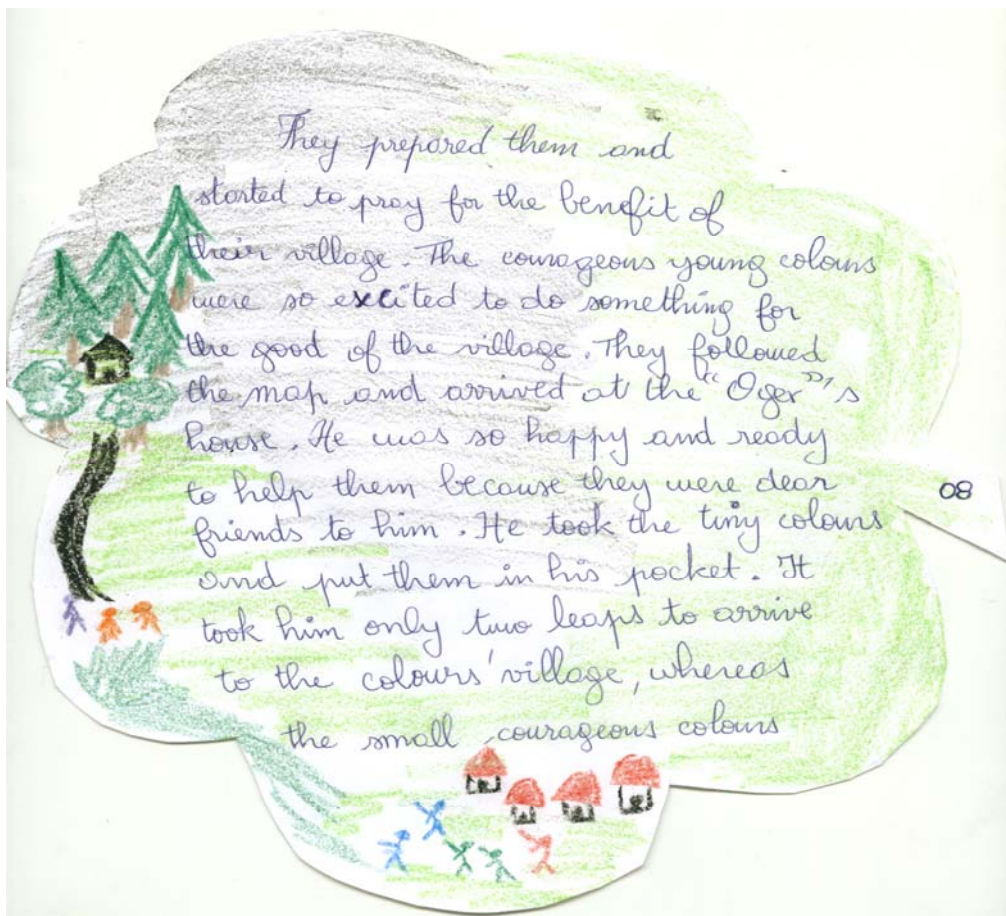 They prepared them and
started to pray for the benefit of
their village. The courageous young colours
were so excited to do something for
the good of the village. They followed
the map and arrived at the "Oger"'s
house. He was so happy and ready
to help them because they were dear
friends to him. He took the tiny colours
and put them in his pocket. It
took him only two leaps to arrive
to the colours' village, whereas
the small courageous colours
08